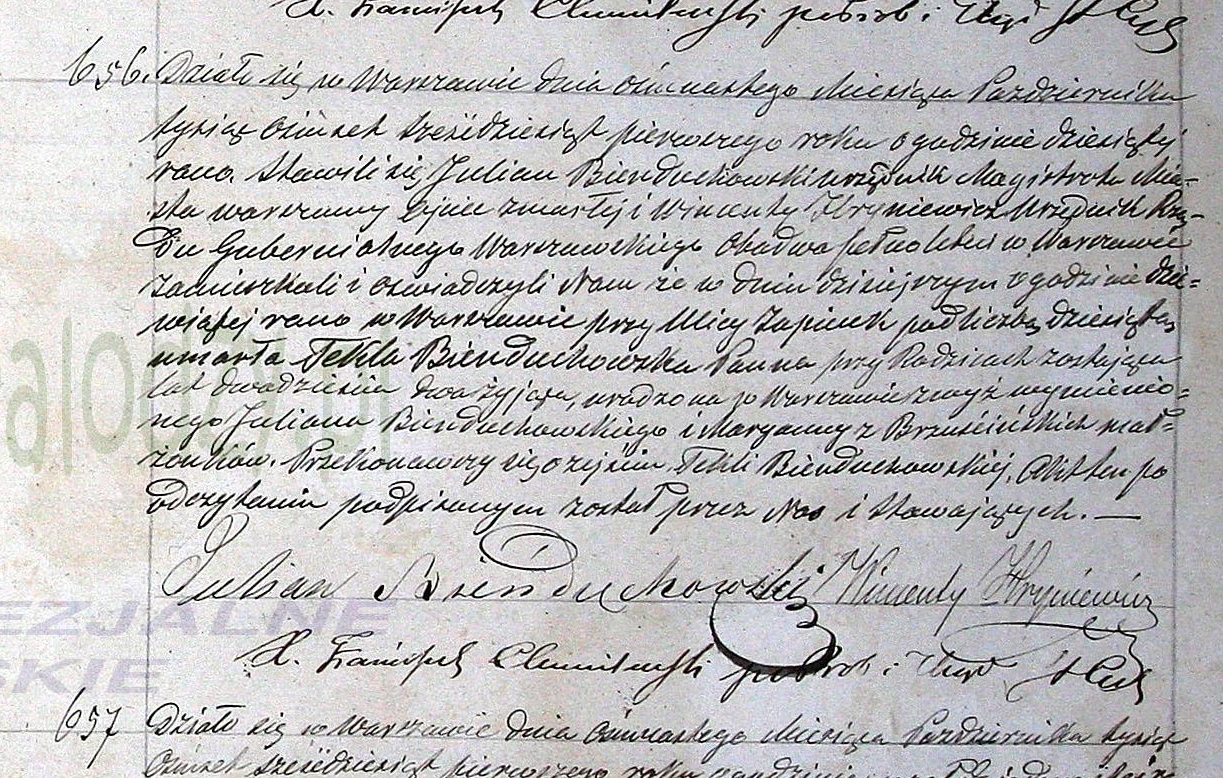 X. Franciszek
656. Działo się w Warszawie dnia ośmnastego Miesiąca Października
tysiąc ośmset sześćdziesiąt pierwszego roku o godzinie dziesiąty
rano. Stawili się Julian Bienduchowski urzędnik Magistratu Mia-
sta warszawy Ojciec zmarłej i Wincenty Hryniewicz Urzędnik Rzą-
Du Gubernialnego Warszawskiego Obadwa pełnoletni w Warszawie
zamieszkali i oświadczyli Nam że w dniu dzisiejszym o godzinie dzie=
wiątej rano w Warszawie przy Ulicy Zapiecek pod liczbą dziesiątą
umarła Tekla Bienduchowska Panna przy Rodzicach zostająca
lat dwadzieścia dwa żyjąca, urodzona w Warszawie z wyż wymienio=
nego Juliana Bienduchowskiego i Maryanny z Brześcińskich mał=
żonków. Przekonawszy się o zejściu Tekli Bienduchowskiej, Akt ten po
odczytaniu podpisanym został przez Nas i Stawających. —
Julian Bienduchowski Wincenty Hryniewicz
X. Franciszek
657 Działo się w Warszawie dnia ośmnastego Miesiąca Października tysiąc
ośmset sześćdziesiąt pierwszego roku o godzinie
alodzy.pl
EZJALNE
SKIE